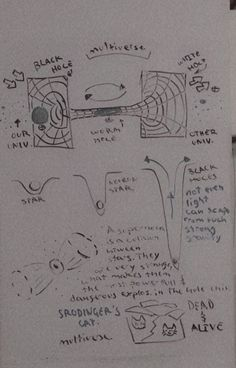 multiverse
BLACK
HOLE
WHITE
HOLE
OUR
UNIV.
WORM
HOLE
OTHER
UNIV.
STAR
STAR
BLACK
HOLES
not even
light
can scape
from such
strong
gravity
A supernova
is a collision
between
stars. They
very strong,
what makes them
the most powerfull &
dangerous explos. in the
SRODINGER'S
CAT.
multiverse
DEAD
&
ALIVE